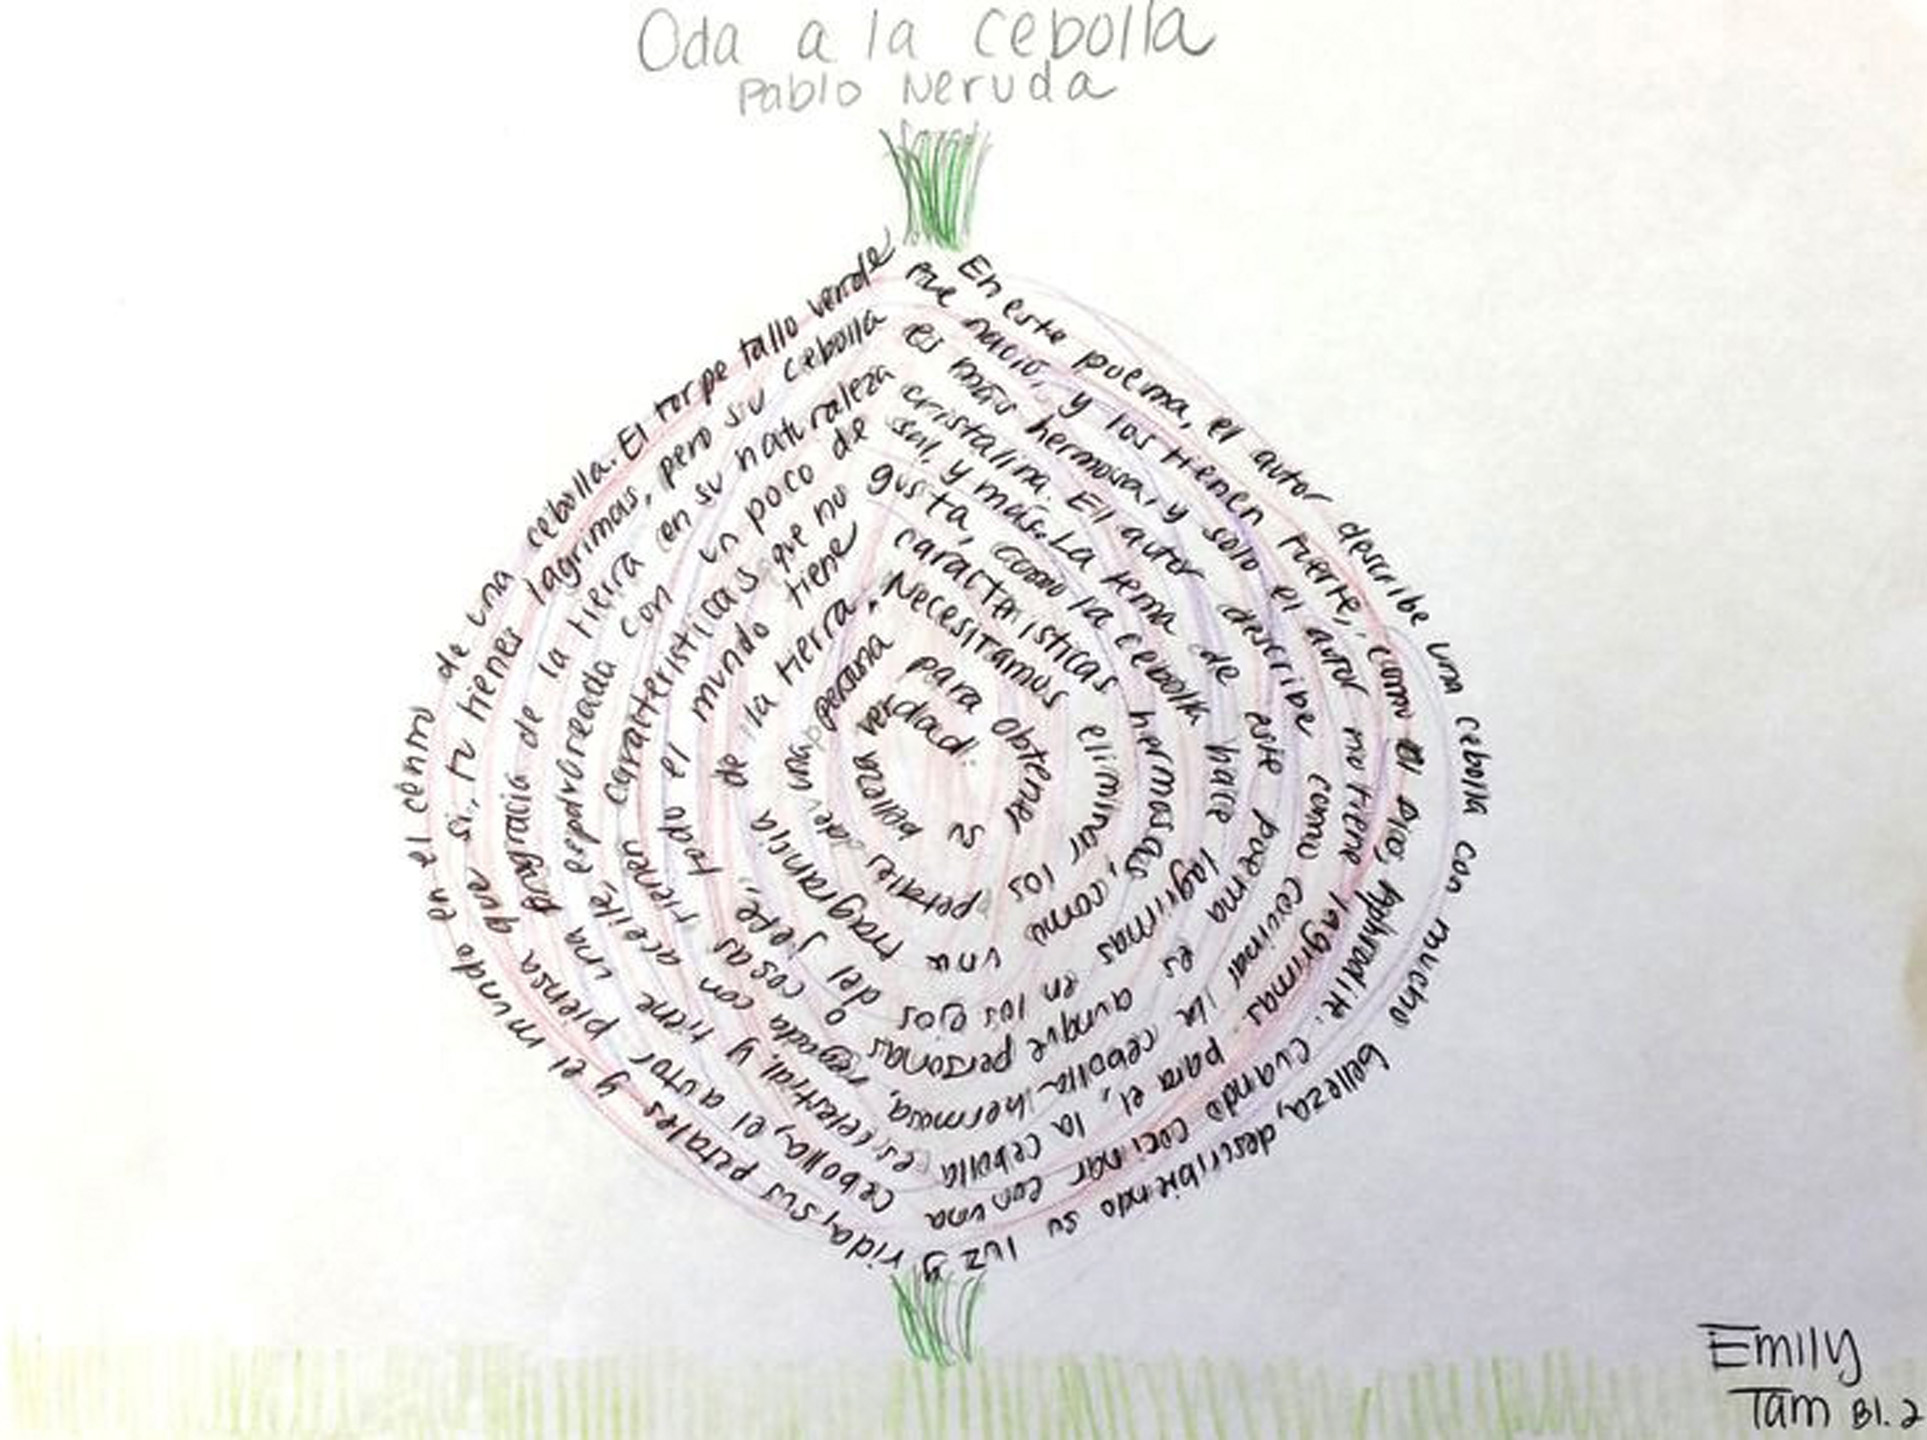 Oda a la cebolla
Pablo Neruda
En este poema, el autor describe una cebolla con mucho belleza, describiendo su luz y vida, sus petales y el mundo en el centro de una cebolla. El torpe tallo verde
que nació, y los tienen fuerte, como el Dio, Aphrodite. Cuando cocinar con una cebolla, el autor piensa que si, tu tienes lagrimas, pero su cebolla
es más hermosa, y solo el autor no tiene lagrimas. para el, la cebolla es celestial, y tiene una fragracia de la tierra en su naturaleza
cristalina. El autor describe como cocinar la cebolla hermosa, regada con aceite, espolvoreada con un poco de
sal, y más. La tema de este poema es aunque personas o cosas tienen caracteristicas que no
gusta, como la cebolla hace lagrimas en los ojos del jefe, todo el mundo tiene
caracteristicas hermosas, como una fragrancia de la tierra.
Necesitamos eliminar los petales de una persona
para obtener su belleza
verdad.
Emily
Tam Bl. 2